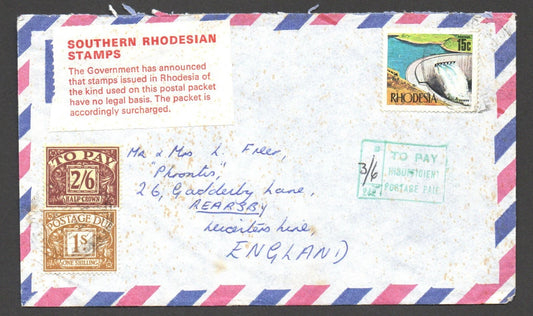 SOUTHERN RHODESIAN
STAMPS
The Government has announced
that stamps issued in Rhodesia of
the kind used on this postal packet
have no legal basis. The packet is
accordingly surcharged.
15c
RHODESIA
TO PAY
2/6
HALF CROWN
POSTAGE DUE
1S
ONE SHILLING
Mr & Mrs L. Freer,
"Phrontis",
26, Gadderby Lane,
REARSBY
Leicestershire,
ENGLAND
3/6
TO PAY
INSUFFICIENT
POSTAGE PAID